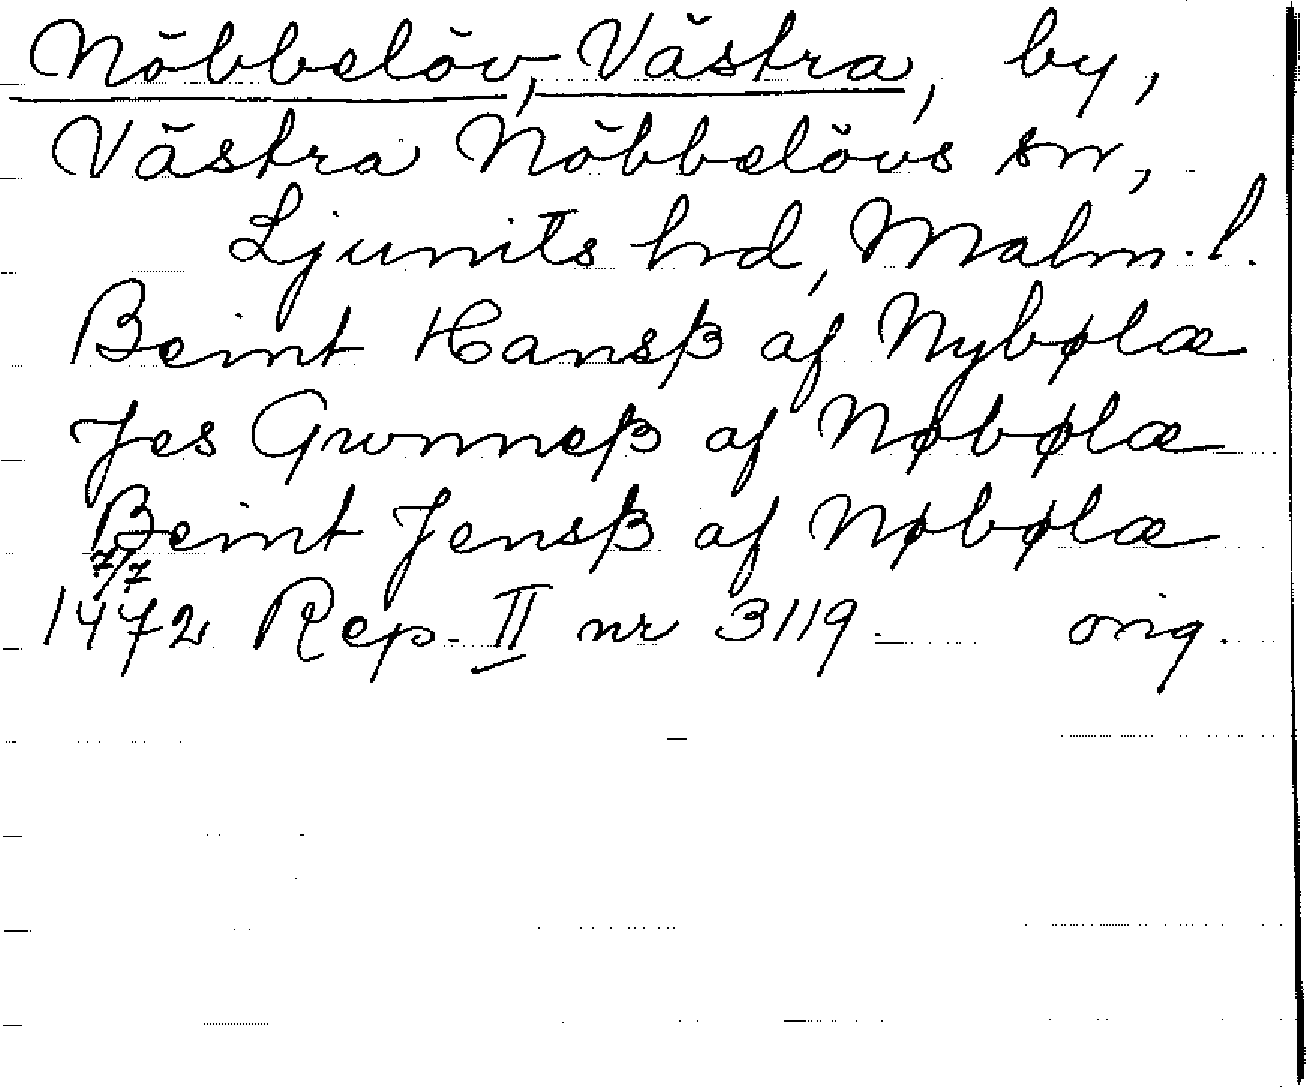 Nöbbelöv, Västra, by,
Västra Nöbbelövs sn,
Ljunits hd, Malm. l.
Beint Hansß af Nybølæ
Jes Gwnneß af Nøbølæ
Beint Jensß af Nøbølæ
7/7
1472 Rep. II nr 3119. orig.